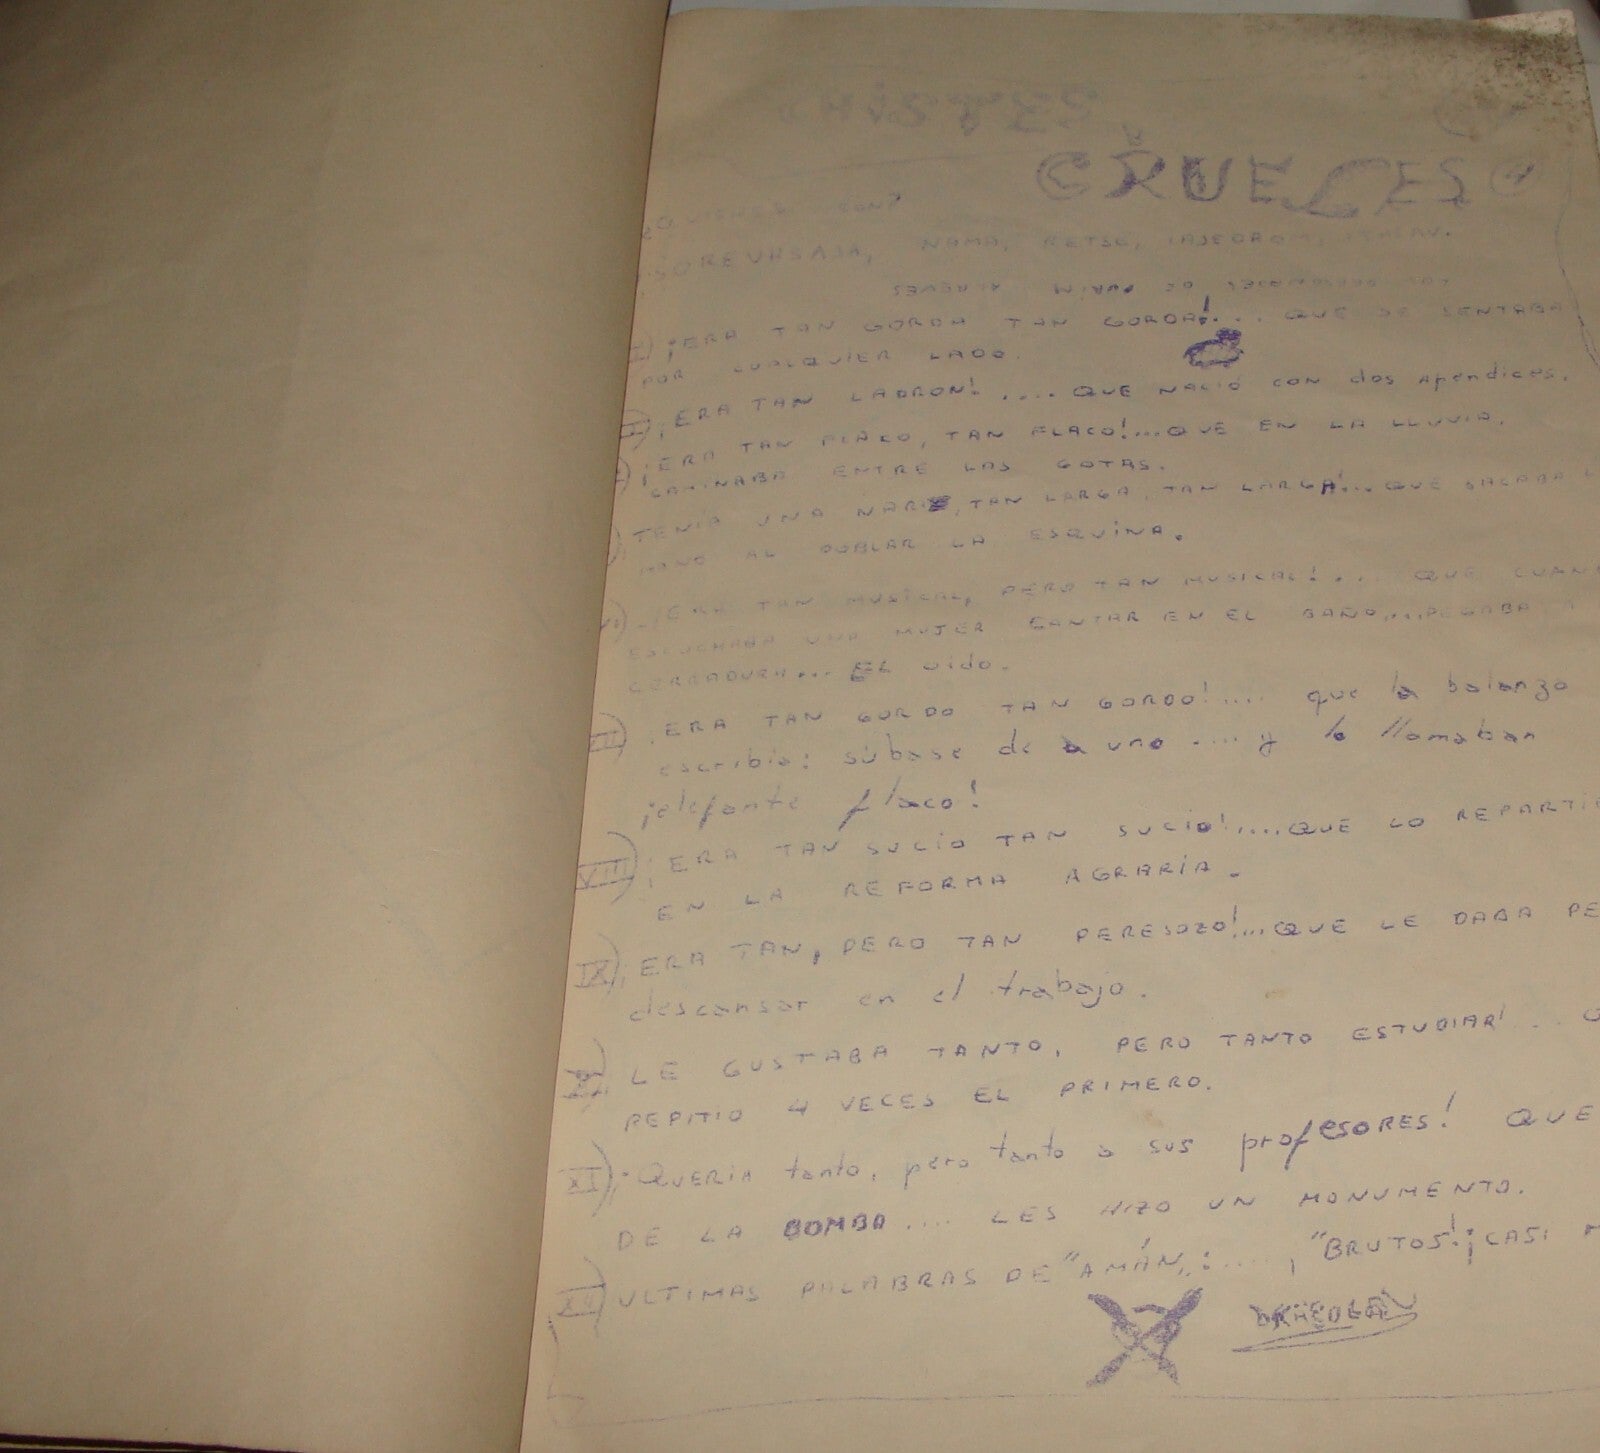 CRUELES
¿QUIENES SON?
SOREUHSASA, NAMA, RETSE, IAJEDROM,
¡ERA TAN GORDA TAN GORDA!... QUE SE SENTABA
POR CUALQUIER LADO.
¡ERA TAN LADRON!.... QUE NACIÓ CON dos Apendices.
¡ERA TAN FLACO, TAN FLACO!...QUE EN LA LLUVIA,
CAMINABA ENTRE LAS GOTAS.
TENIA UNA NARIZ, TAN LARGA, TAN LARGA!...QUE SACABA
MANO AL DOBLAR LA ESQUINA.
¡ERA TAN MUSICAL, PERO TAN MUSICAL!.... QUE CUAN
ESCUCHABA UNA MUJER CANTAR EN EL BAÑO....PEGABA A
CERRADURA... EL oido.
VII) ¡ERA TAN GORDO TAN GORDO!.... que la balanza
escribia: súbase de a uno .... y lo llamaban
¡elefante flaco!
VIII) ¡ERA TAN SUCIO TAN SUCIO!....QUE LO REPARTI
EN LA REFORMA AGRARIA.
IX) ¡ERA TAN, PERO TAN PERESOZO!...QUE LE DABA PE
descansar en el trabajo.
X) LE GUSTABA TANTO, PERO TANTO ESTUDIAR!..
REPITIO 4 VECES EL PRIMERO.
XI) ¡QUERIA tanto, pero tanto a sus profESORES! QUE
DE LA BOMBA.... LES HIZO UN MONUMENTO.
XII) ULTIMAS PALABRAS DE "AMÁN,,:...., "BRUTOS!¡CASI M